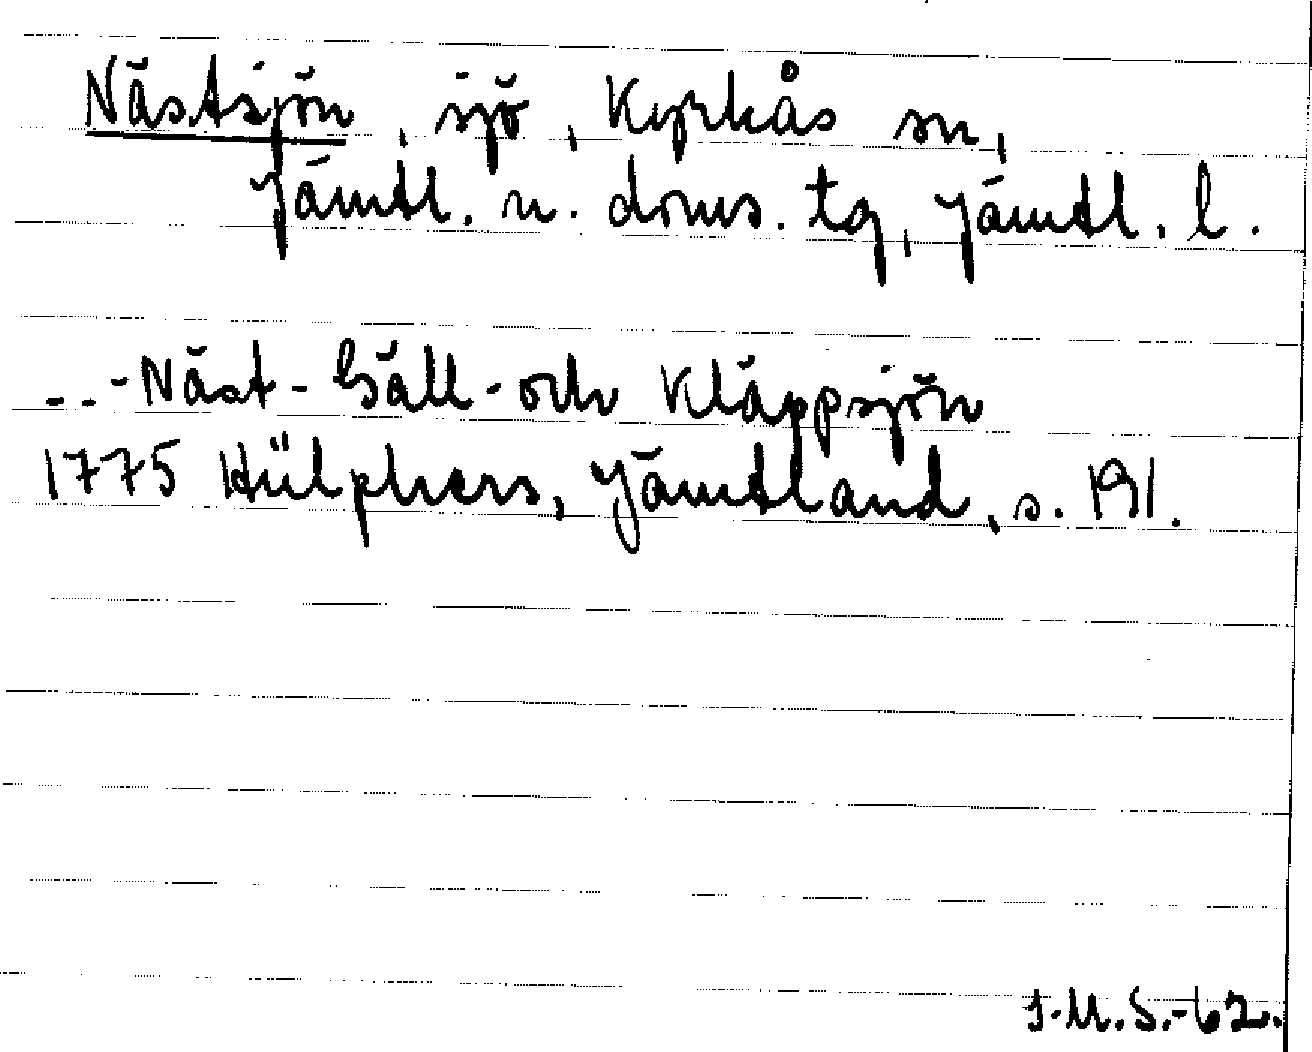 Nästsjön, sjö, Kyrkås sn,
Jämtl. n. doms. tg, Jämtl. l.
--- Näst- Gäll- och Kläppsjön
1775 Hülphers, Jämtland, s. 191.
J.M.S.-62.